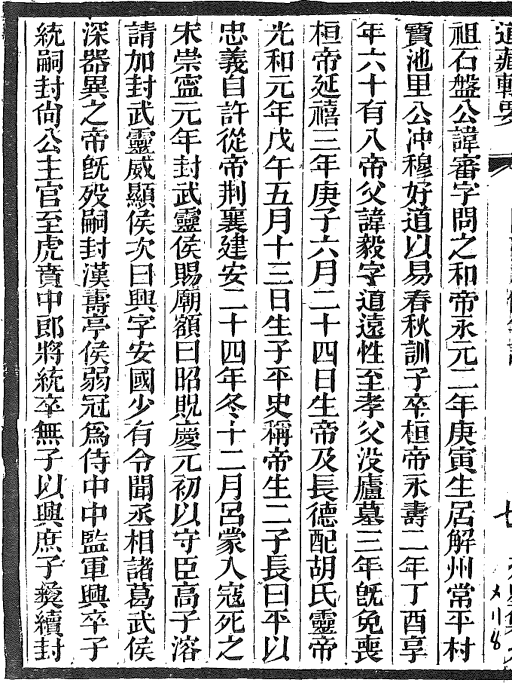 道藏輯要
祖石盤公諱審字問之和帝永元二年庚寅生居解州常平村
寶池里公冲穆好道以易春秋訓子卒桓帝永壽二年丁酉享
年六十有八帝父諱毅字道遠性至孝父没廬墓三年旣免喪
桓帝延禧三年庚子六月二十四日生帝及長德配胡氏靈帝
光和元年戊午五月十三日生子平史稱帝生二子長曰平以
忠義自許從帝荆襄建安二十四年冬十二月呂蒙入寇死之
宋崇寧元年封武靈侯賜廟額曰昭貺慶元初以守臣高子溶
請加封武靈威顯侯次曰興字安國少有令聞丞相諸葛武侯
深器異之帝旣歿嗣封漢壽亭侯弱冠爲侍中中監軍興卒子
統嗣封尙公主官至虎賁中郎將統卒無子以興庶子彝續封